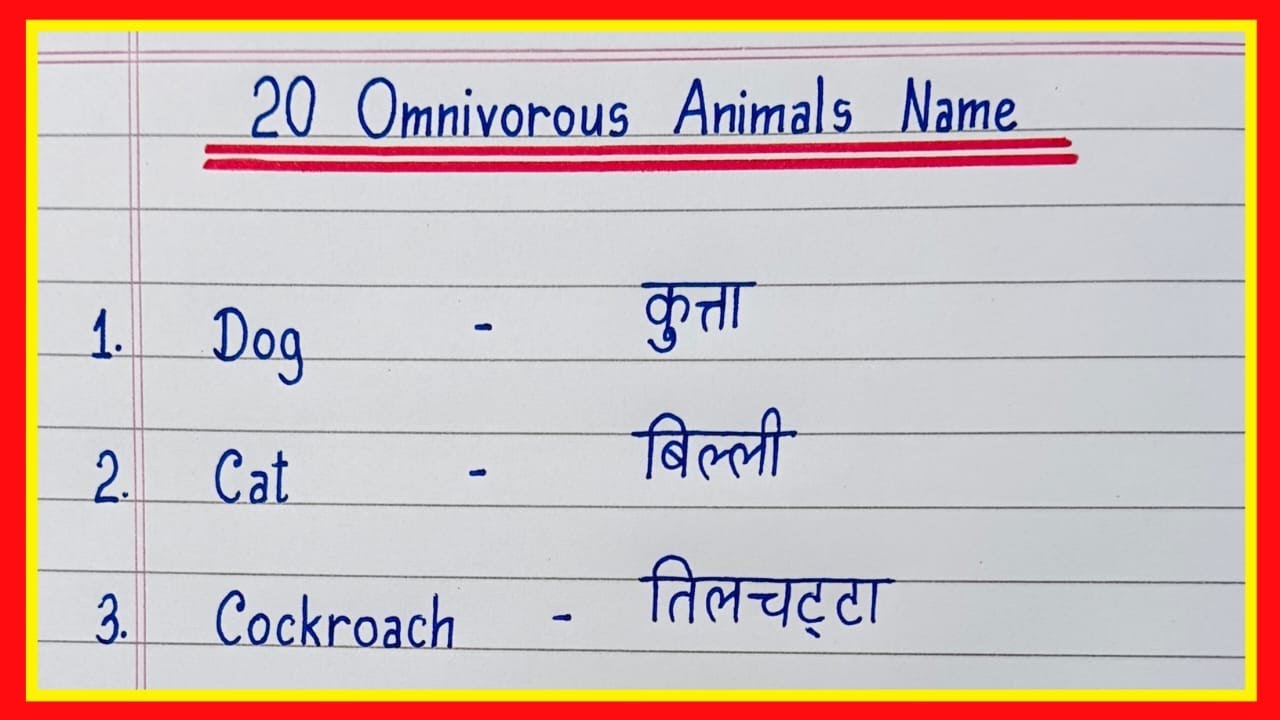 20 Omnivorous Animals Name
1. Dog - कुत्ता
2. Cat - बिल्ली
3. Cockroach - तिलचट्टा